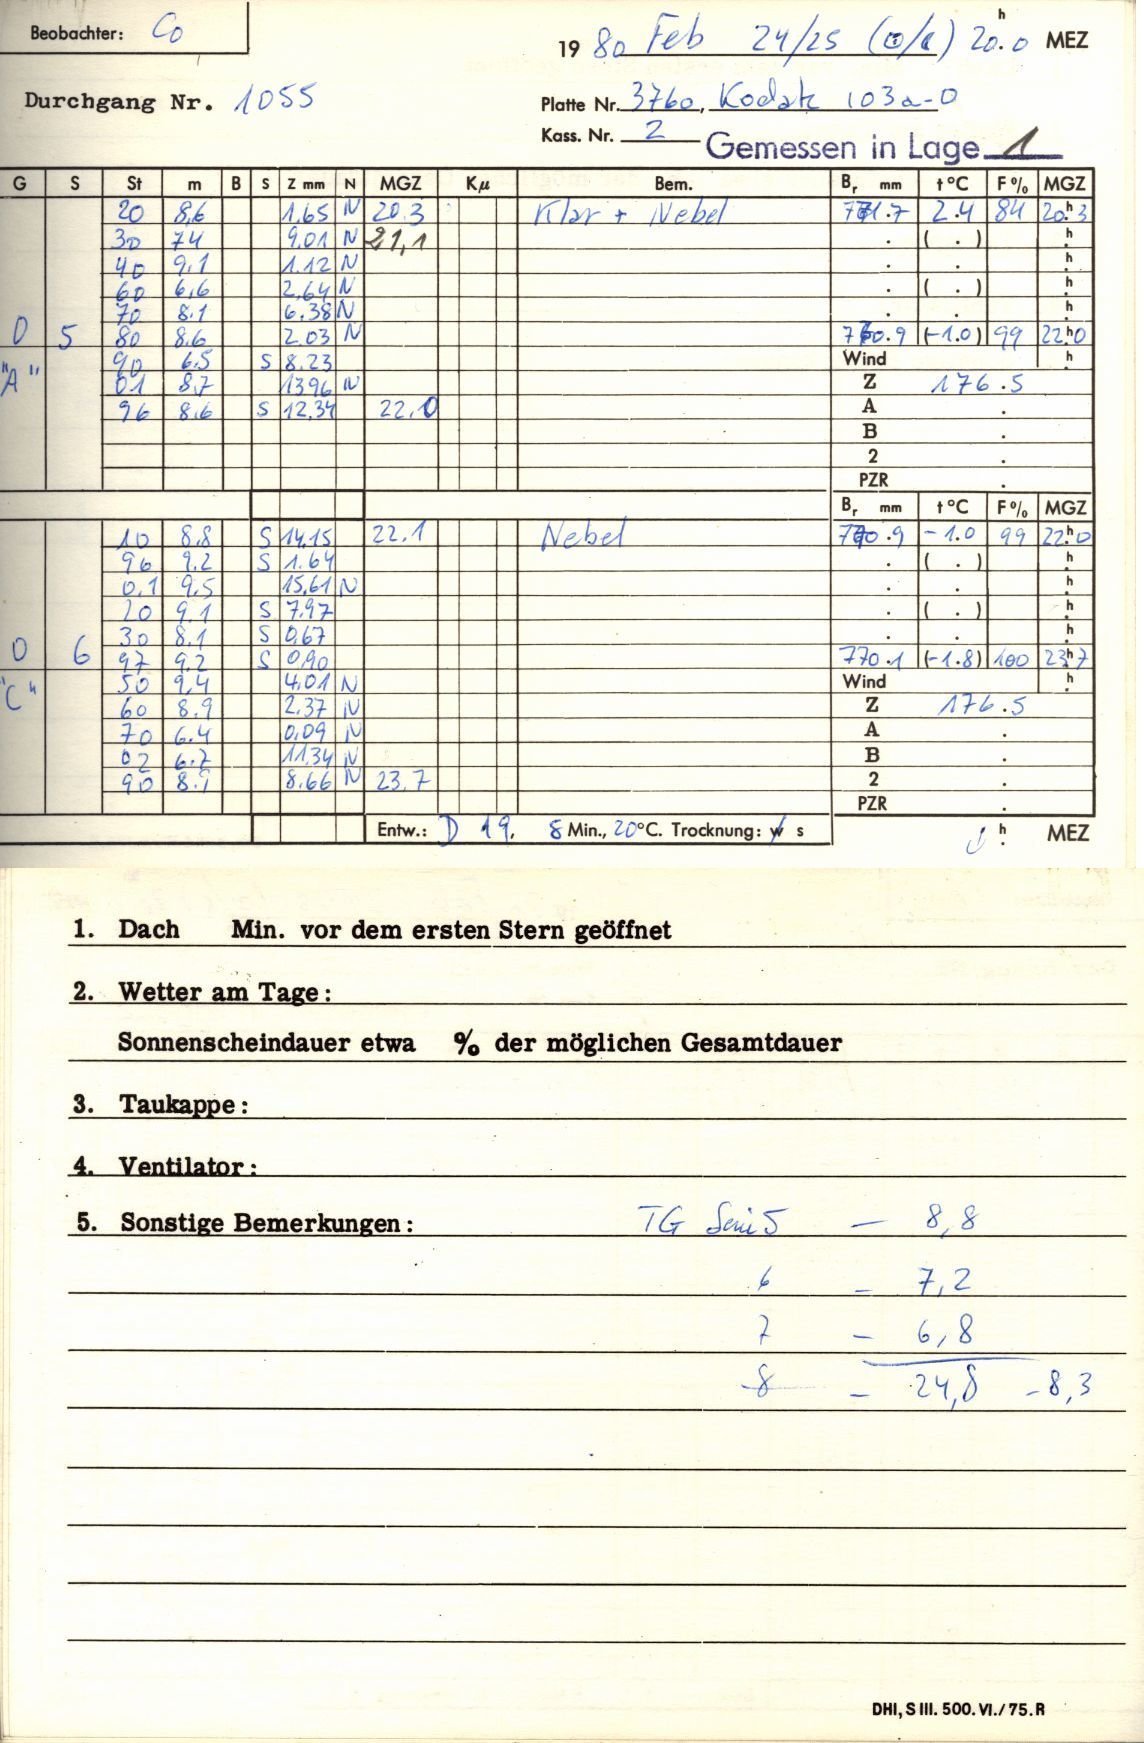 Beobachter: Co
19 80 Feb 24/25 20.0 h MEZ
Durchgang Nr. 1055
Platte Nr. 3760, Kodak 103a-O
Kass. Nr. 2 Gemessen in Lage 1
G S St m B S Z mm N MGZ Kμ Bem. Br mm t °C F % MGZ
20 8.6 1.65 N 20.3 Klar + Nebel 771.7 2.4 84 20.h3
30 7.4 9.01 N 21,1 . ( . ) h
40 9.1 1.12 N . . h
60 6.6 2.64 N . ( . ) h
70 8.1 6.38 N . . h
0 5 80 8.6 2.03 N 770.9 (-1.0) 99 22.h0
"A" 90 6.5 S 8.23 Wind h
01 8.7 13.96 N Z 176.5
96 8.6 S 12.34 22.0 A .
B .
2 .
PZR .
Br mm t °C F % MGZ
10 8.8 S 14.15 22.1 Nebel 770.9 -1.0 99 22.h0
96 9.2 S 1.64 . ( . ) h
0.1 9.5 15.61 N . . h
20 9.1 S 7.97 . ( . ) h
30 8.1 S 0.67 . . h
0 6 97 9.2 S 0.90 770.1 (-1.8) 100 23.h7
"C" 50 9.4 4.01 N Wind h
60 8.9 2.37 N Z 176.5
70 6.4 0.09 N A .
02 6.7 11.34 N B .
90 8.9 8.66 N 23.7 2 .
PZR .
Entw.: D 19, 8 Min., 20°C. Trocknung: w s h MEZ
1. Dach Min. vor dem ersten Stern geöffnet
2. Wetter am Tage:
Sonnenscheindauer etwa % der möglichen Gesamtdauer
3. Taukappe:
4. Ventilator:
5. Sonstige Bemerkungen: TG Serie 5 — 8,8
6 — 7,2
7 — 6,8
8 — 24,8 -8,3
DHI, S III. 500. VI./75. R